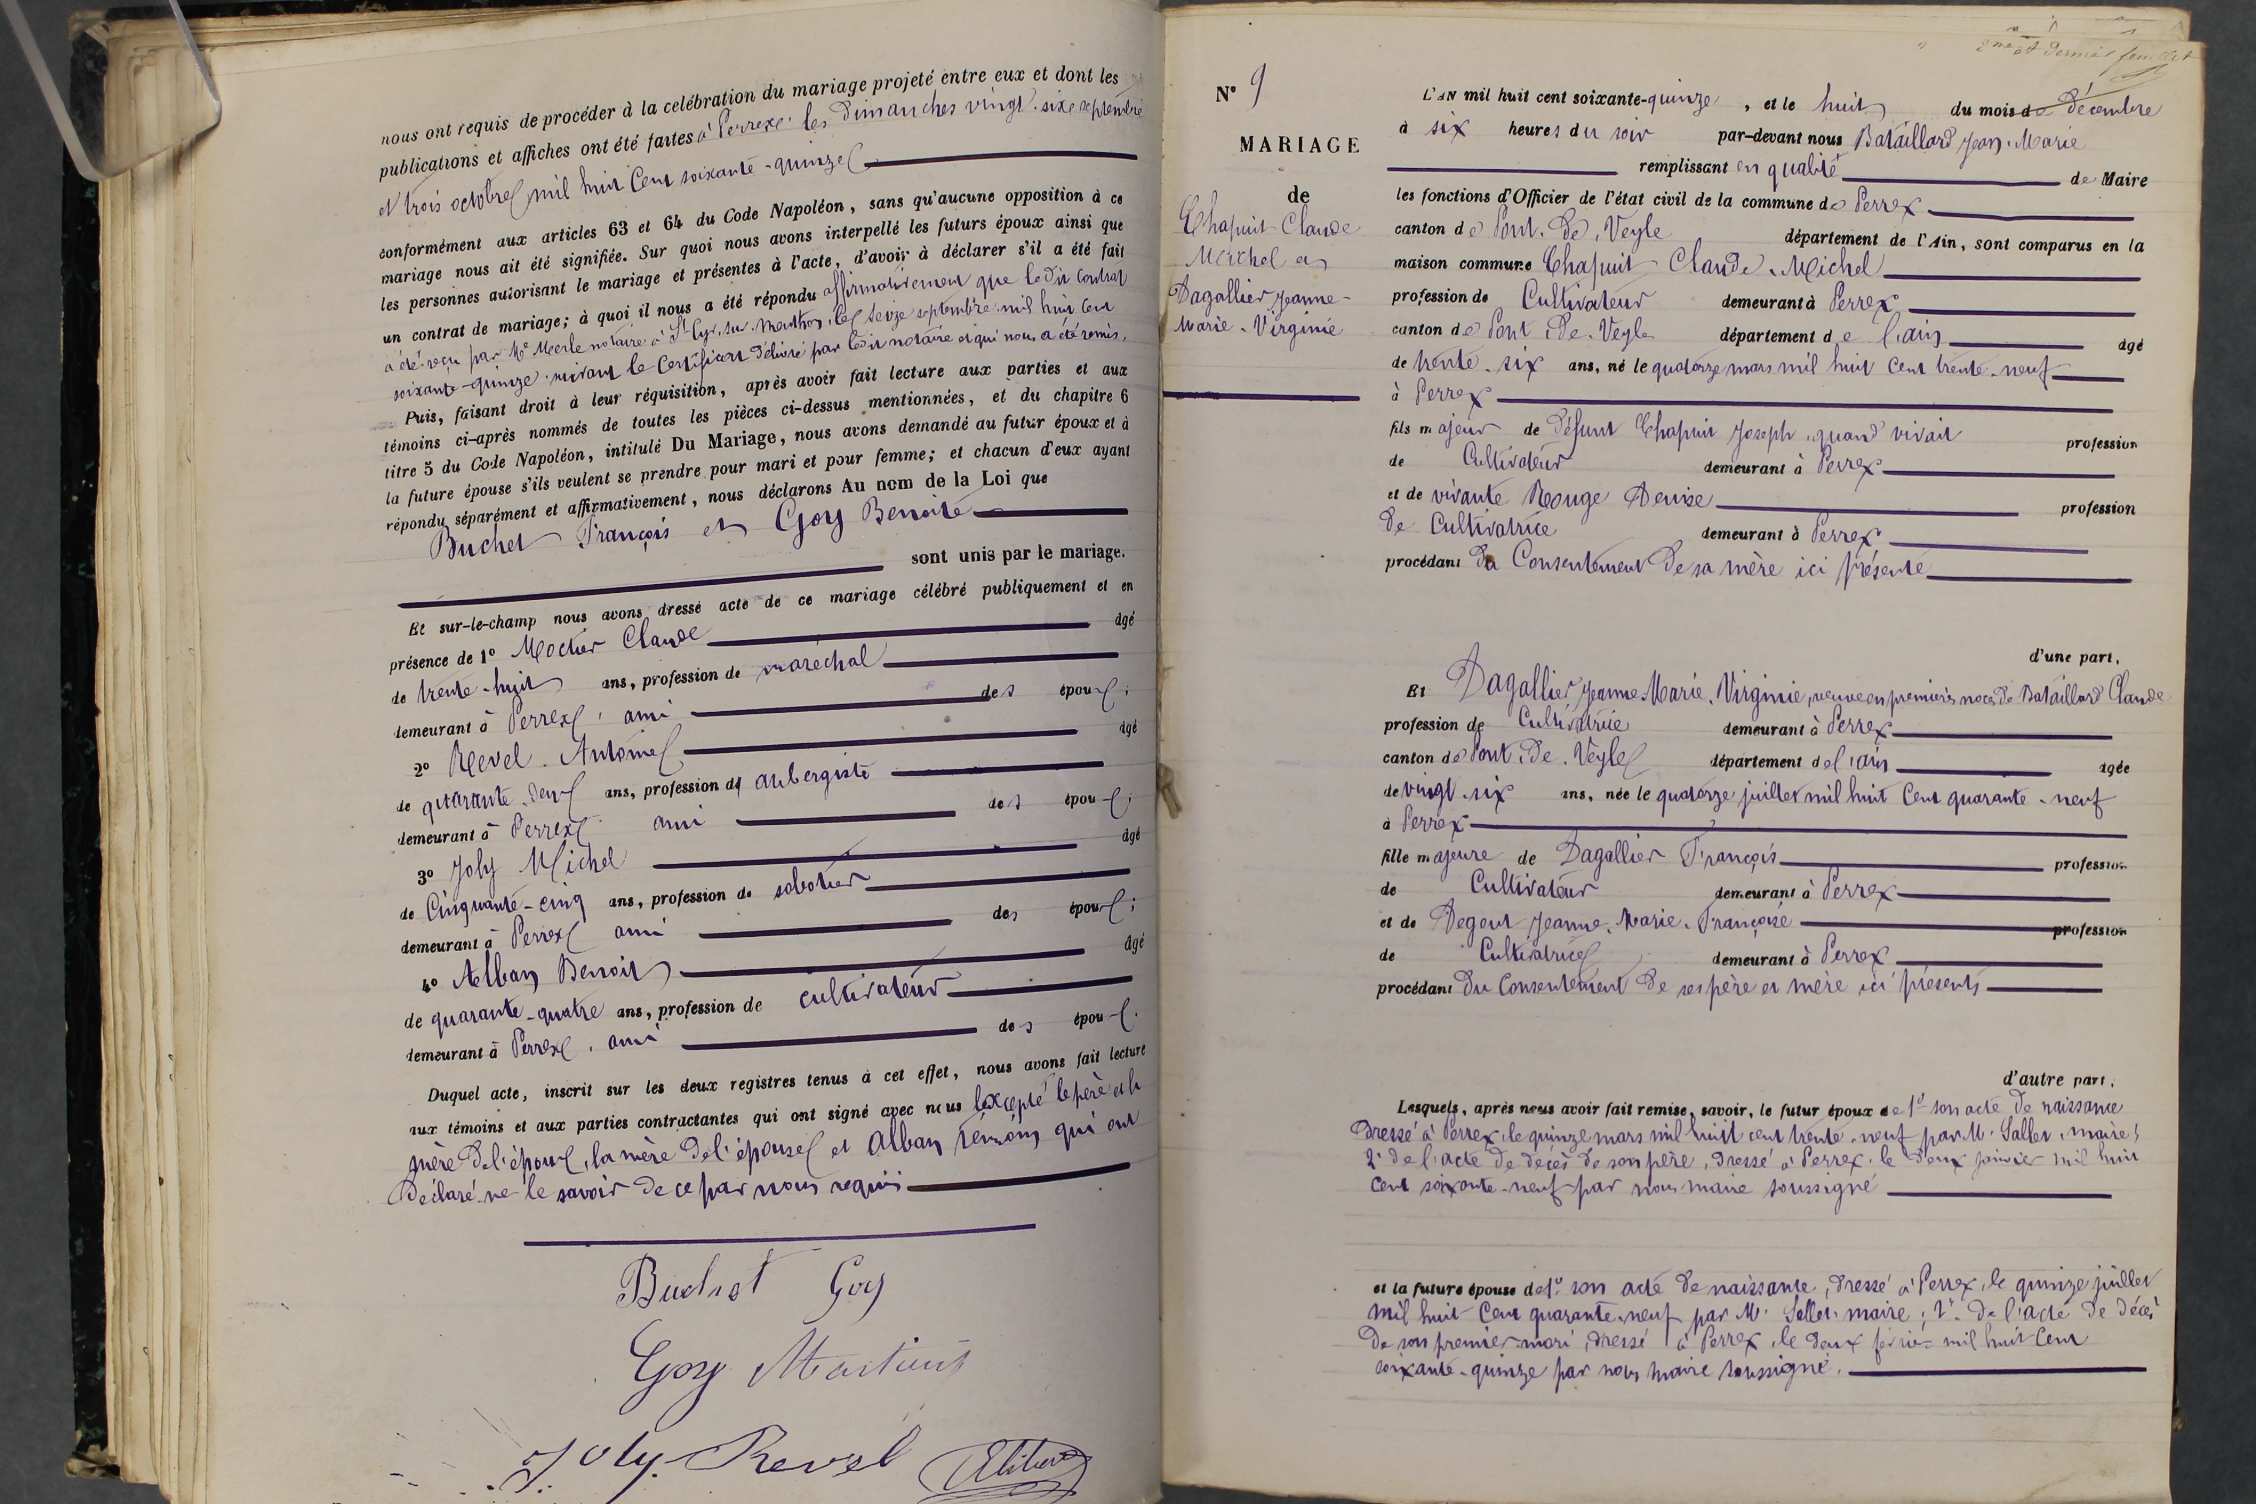 nous ont requis de procéder à la celébration du mariage projeté entre eux et dont les
publications et affiches ont été faites à Perrex les Dimanches vingt-six septembre
et trois octobre mil huit Cent soixante-quinze
conformément aux articles 63 et 64 du Code Napoléon, sans qu'aucune opposition à ce
mariage nous ait été signifiée. Sur quoi nous avons interpellé les futurs époux ainsi que
les personnes autorisant le mariage et présentes à l'acte, d'avoir à déclarer s'il a été fait
un contrat de mariage; à quoi il nous a été répondu affirmativement que ledit contrat
a été reçu par Me Merle notaire à St Cyr-sur-Menthon, le seize septembre mil huit Cent
soixante-quinze suivant le Certificat délivré par ledit notaire et qui nous a été remis.
Puis, faisant droit à leur réquisition, après avoir fait lecture aux parties et aux
témoins ci-après nommés de toutes les pièces ci-dessus mentionnées, et du chapitre 6
titre 5 du Code Napoléon, intitulé Du Mariage, nous avons demandé au futur époux et à
la future épouse s'ils veulent se prendre pour mari et pour femme; et chacun d'eux ayant
répondu séparément et affirmativement, nous déclarons Au nom de la Loi que
Buchet François et Goy Benoite
sont unis par le mariage.
Et sur-le-champ nous avons dressé acte de ce mariage célébré publiquement et en
présence de 1o Claude âgé
de trente-huit ans, profession de maréchal
demeurant à Perrex, ami des époux;
2o Revel Antoine âgé
de quarante-deux ans, profession de aubergiste
demeurant à Perrex ami des époux;
3o Joly Michel âgé
de Cinquante-cinq ans, profession de sabotier
demeurant à Perrex ami des époux;
4o Alban Benoit âgé
de quarante-quatre ans, profession de cultivateur
demeurant à Perrex, ami des époux.
Duquel acte, inscrit sur les deux registres tenus à cet effet, nous avons fait lecture
aux témoins et aux parties contractantes qui ont signé avec nous excepté le père et la
mère de l'époux, la mère de l'épouse et Alban témoin qui ont
déclaré ne le savoir de ce par nous requis
Buchet Goy
Goy
Joly Revel
2me et dernier feuillet
No 9
MARIAGE
de
Chapuit Claude
Michel et
Dagallier Jeanne-
Marie-Virginie
L'AN mil huit cent soixante-quinze, et le huit du mois de décembre
à six heures du soir par-devant nous Bataillard Jean-Marie
remplissant en qualité de Maire
les fonctions d'Officier de l'état civil de la commune de Perrex
canton de Pont-de-Veyle département de l'Ain, sont comparus en la
maison commune Chapuit Claude-Michel
profession de Cultivateur demeurant à Perrex
canton de Pont-de-Veyle département de l'ain âgé
de trente-six ans, né le quatorze mars mil huit Cent trente-neuf
à Perrex
fils majeur de défunt Chapuit Joseph quand vivait profession
de Cultivateur demeurant à Perrex
et de vivante Rouge Denise profession
de Cultivatrice demeurant à Perrex
procédant du Consentement de sa mère ici présente
d'une part,
Et Dagallier Jeanne-Marie-Virginie, veuve en premières noces de Bataillard Claude
profession de Cultivatrice demeurant à Perrex
canton de Pont-de-Veyle département de l'ain âgée
de vingt-six ans, née le quatorze juillet mil huit Cent quarante-neuf
à Perrex
fille majeure de Dagallier François profession
de Cultivateur demeurant à Perrex
et de Degout Jeanne-Marie-Françoise profession
de Cultivatrice demeurant à Perrex
procédant du Consentement de ses père et mère ici présents
d'autre part,
Lesquels, après nous avoir fait remise, savoir, le futur époux de 1o son acte de naissance
dressé à Perrex, le quinze mars mil huit cent trente-neuf par M. Sallet, maire;
2o de l'acte de décès de son père, dressé à Perrex, le deux janvier mil huit
Cent soixante-neuf par nous maire soussigné
et la future épouse de 1o son acte de naissance, dressé à Perrex, le quinze juillet
mil huit Cent quarante-neuf par M. Sallet, maire; 2o de l'acte de décès
de son premier mari, dressé à Perrex, le deux février mil huit Cent
soixante-quinze par nous maire soussigné.